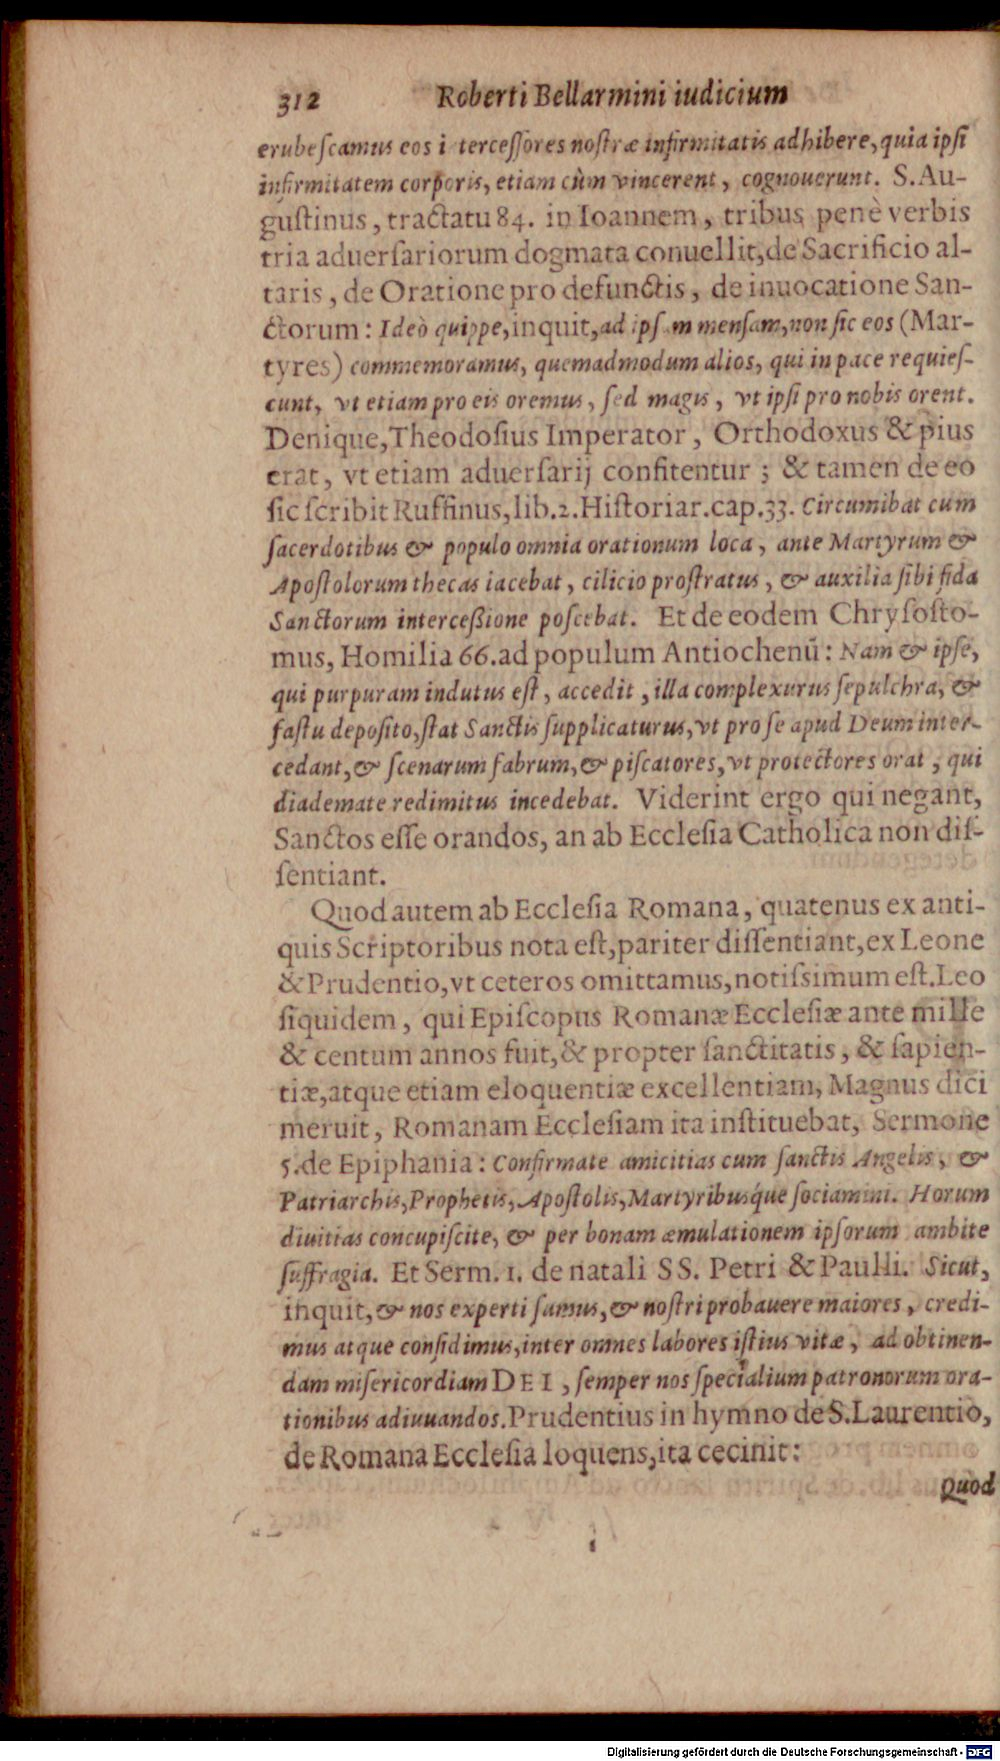 312 Roberti Bellarmini iudicium
erubeſcamus eos i terceſſores noſtræ infirmitatis adhibere, quia ipſi
infirmitatem corporis, etiam cùm vincerent, cognouerunt. S. Au-
guſtinus, tractatu 84. in Ioannem, tribus penè verbis
tria aduerſariorum dogmata conuellit, de Sacrificio al-
taris, de Oratione pro defunctis, de inuocatione San-
ctorum: Ideò quippe, inquit, ad ipſ m menſam, non ſic eos (Mar-
tyres) commemoramus, quemadmodum alios, qui in pace requieſ-
cunt, vt etiam pro eis oremus, ſed magis, vt ipſi pro nobis orent.
Denique, Theodoſius Imperator, Orthodoxus & pius
erat, vt etiam aduerſarij confitentur; & tamen de eo
ſic ſcribit Ruffinus, lib. 2. Hiſtoriar. cap. 33. Circumibat cum
ſacerdotibus & populo omnia orationum loca, ante Martyrum &
Apoſtolorum thecas iacebat, cilicio proſtratus, & auxilia ſibi fida
Sanctorum interceßione poſcebat. Et de eodem Chryſoſto-
mus, Homilia 66. ad populum Antiochenū: Nam & ipſe,
qui purpuram indutus eſt, accedit, illa complexurus ſepulchra, &
faſtu depoſito, ſtat Sanctis ſupplicaturus, vt pro ſe apud Deum inter-
cedant, & ſcenarum fabrum, & piſcatores, vt protectores orat, qui
diademate redimitus incedebat. Viderint ergo qui negant,
Sanctos eſſe orandos, an ab Eccleſia Catholica non diſ-
ſentiant.
Quod autem ab Eccleſia Romana, quatenus ex anti-
quis Scriptoribus nota eſt, pariter diſſentiant, ex Leone
& Prudentio, vt ceteros omittamus, notiſsimum eſt. Leo
ſiquidem, qui Epiſcopus Romanæ Eccleſiæ ante mille
& centum annos fuit, & propter ſanctitatis, & ſapien-
tiæ, atque etiam eloquentiæ excellentiam, Magnus dici
meruit, Romanam Eccleſiam ita inſtituebat, Sermone
5. de Epiphania: Confirmate amicitias cum ſanctis Angelis, &
Patriarchis, Prophetis, Apoſtolis, Martyribusque ſociamini. Horum
diuitias concupiſcite, & per bonam æmulationem ipſorum ambite
ſuffragia. Et Serm. 1. de natali SS. Petri & Paulli. Sicut,
inquit, & nos experti ſumus, & noſtri probauere maiores, credi-
mus atque confidimus, inter omnes labores iſtius vitæ, ad obtinen-
dam miſericordiam DEI, ſemper nos ſpecialium patronorum ora-
tionibus adiuuandos. Prudentius in hymno de S. Laurentio,
de Romana Eccleſia loquens, ita cecinit:
Quod
Digitalisierung gefördert durch die Deutsche Forschungsgemeinschaft - DFG